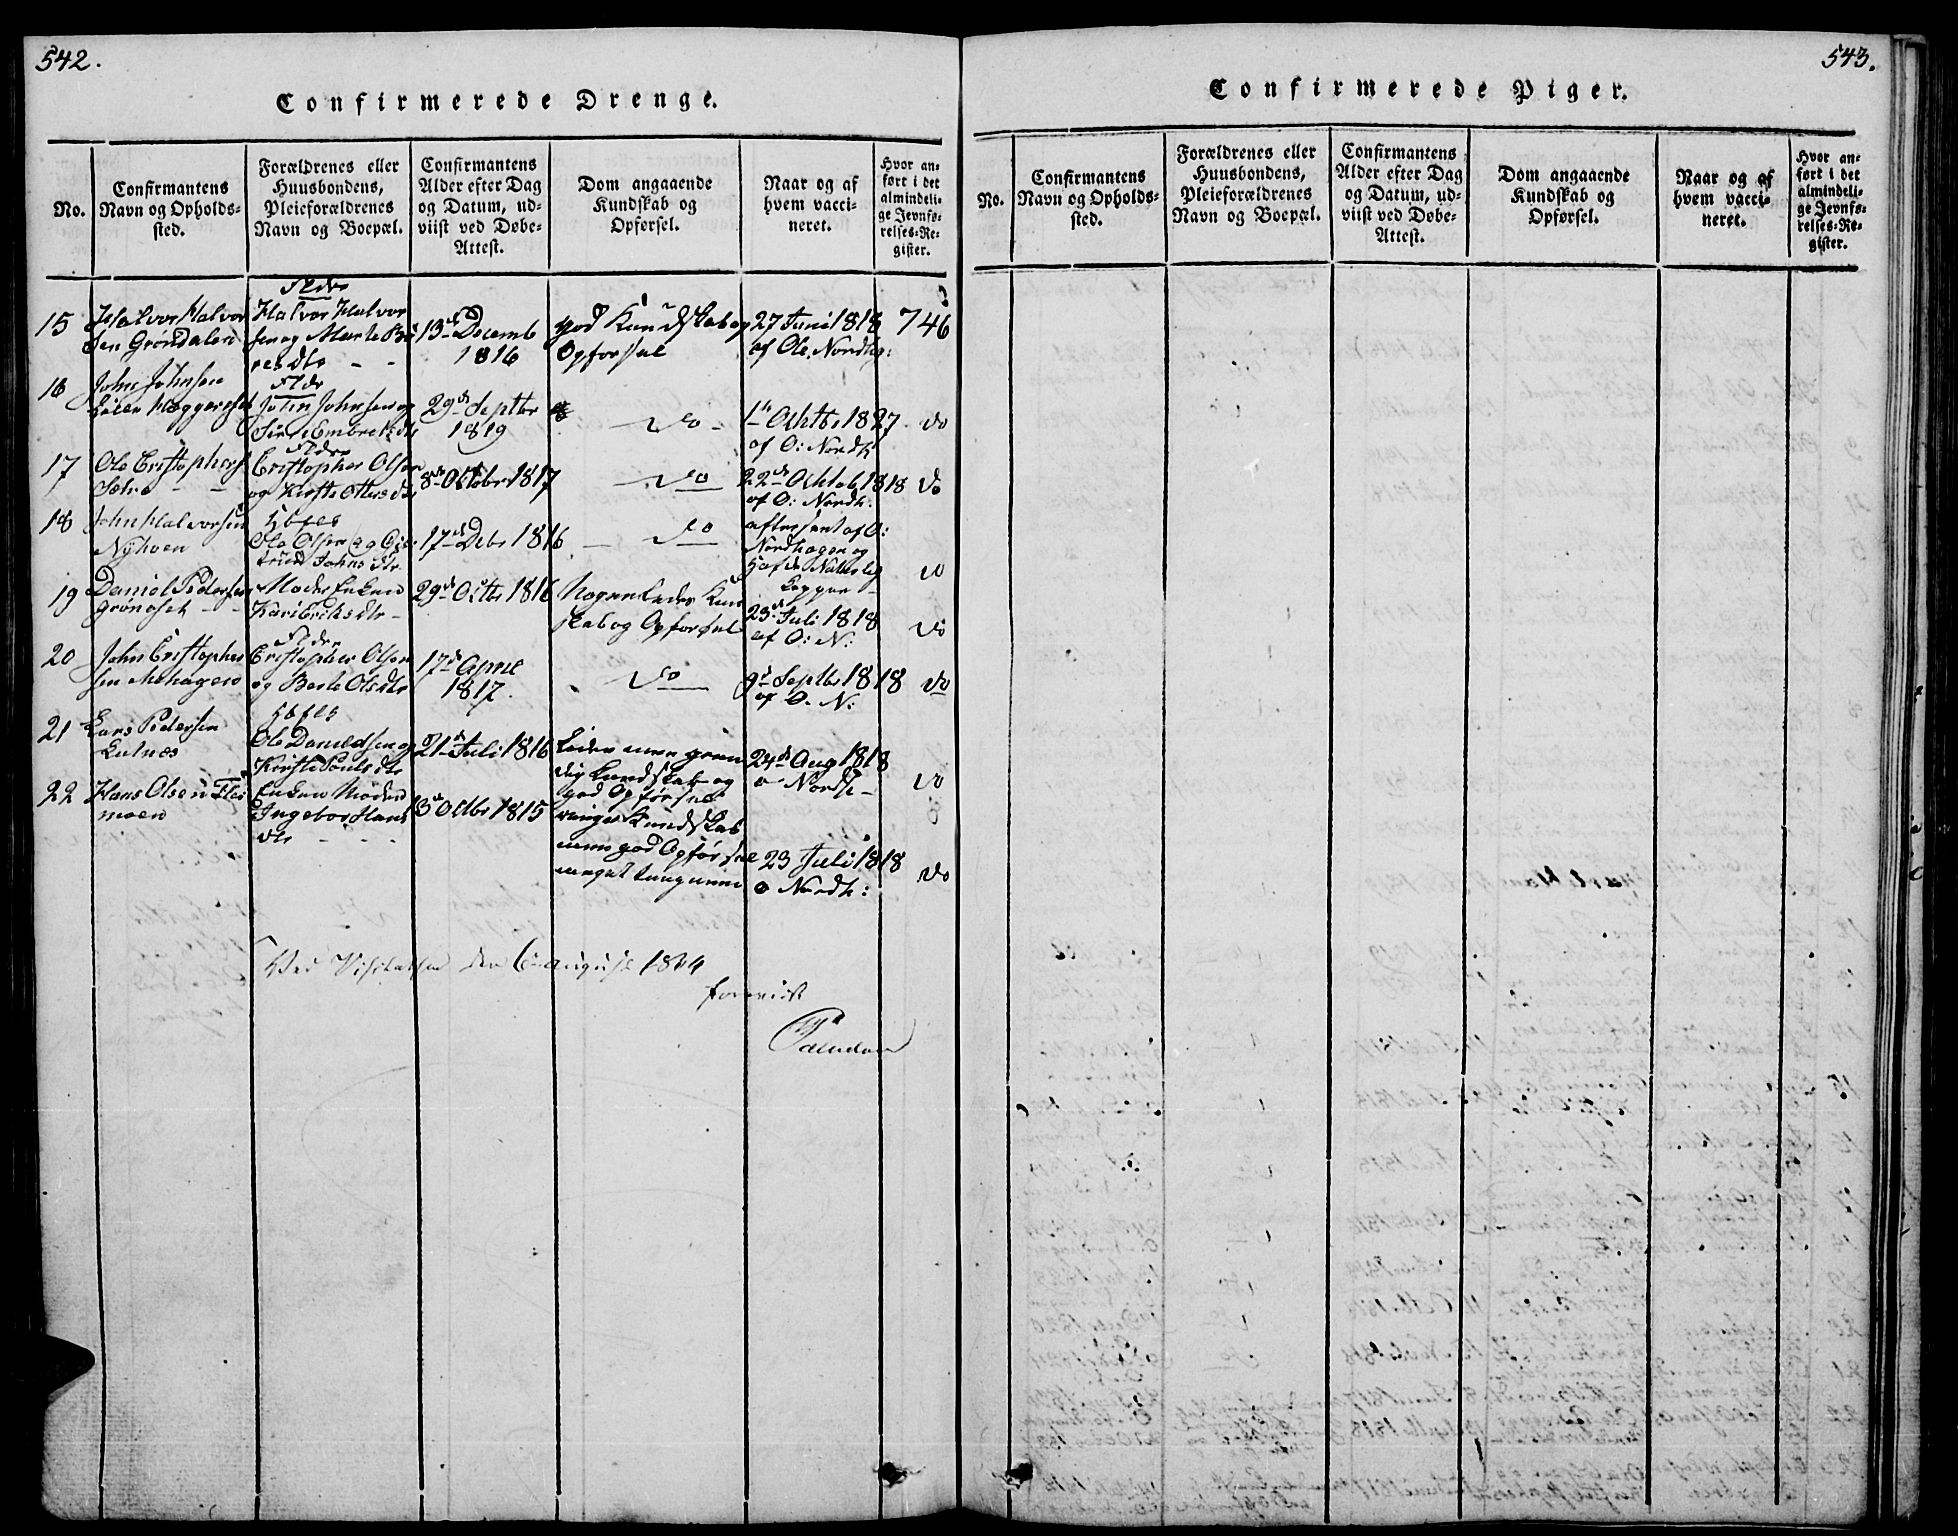 542.
Confirmerede Drenge.
No.
Confirmantens
Navn og Opholds-
sted.
Forældrenes eller
Huusbondens,
Pleieforældrenes
Navn og Boepæl.
Confirmantens
Alder efter Dag
og Datum, ud-
viist ved Døbe-
Attest.
Dom angaaende
Kundskab og
Opførsel.
Naar og af
hvem vacci-
neret.
Hvor an-
ført i det
almindeli-
ge Jevnfø-
relses-Re-
gister.
15
Halvor Halvor
sen Grøndalen
Fldre
Halvor Halvor
sen og Marte
13de Decemb
1816
god Kundskab og
Opførsel
27 Juni 1818
af Ole Nordhg:
746
16
John Johnsen
Fldre
John Johnsen og
Siri Embretsdtr
29de Septbr
1819
do
1ste Octbr 1827
af O: Nordh
do
17
Ole Cristophers
Fldre
Cristopher Olsen
og Kirstie Ottersdtr
8de Octobr 1817
do
22de Octob 1818
af O: Nordh:
do
18
John Halvorsen
Nyhuen
Ola Olsen og
Johnsdtr
17de Debr 1816
do
attesteret af O:
Nordhagen og
hafde Naturlig
Kopper
do
19
Daniel Pedersen
Grønoset
Moder Enken
Kari Eriksdtr
29de Octbr 1816
Nogenledes Kun
skab og Opførsel
23de Juli 1818
af O: N:
do
20
John Cristopher
sen Mohagen
Fldre
Cristopher Olsen
og Berte Olsdtr
17de April
1817.
do
9de Septbr 1818
af O. N:
do
21
Lars Pedersen
Lutnæs
Ole Danielsen og
Kirstie Poulsdtr
21de Juli 1816
Liden men grun
dig Kundskab og
god Opførsel
24de Aug 1818
o Nordh
do
22
Hans Olsen
moen
Enken Moder
Ingebor Hans
dtr
13de Octbr 1815
ringe Kundskab
men god Opførsel
meget tungnem
23 Juli 1818
o Nordh:
do
Ved Visitatsen den 6 august 1834
foreviist
543.
Confirmerede Piger.
No.
Confirmantens
Navn og Opholds-
sted.
Forældrenes eller
Huusbondens,
Pleieforældrenes
Navn og Boepæl.
Confirmantens
Alder efter Dag
og Datum, ud-
viist ved Døbe-
Attest.
Dom angaaende
Kundskab og
Opførsel.
Naar og af
hvem vacci-
neret.
Hvor an-
ført i det
almindeli-
ge Jevnfø-
relses-Re-
gister.